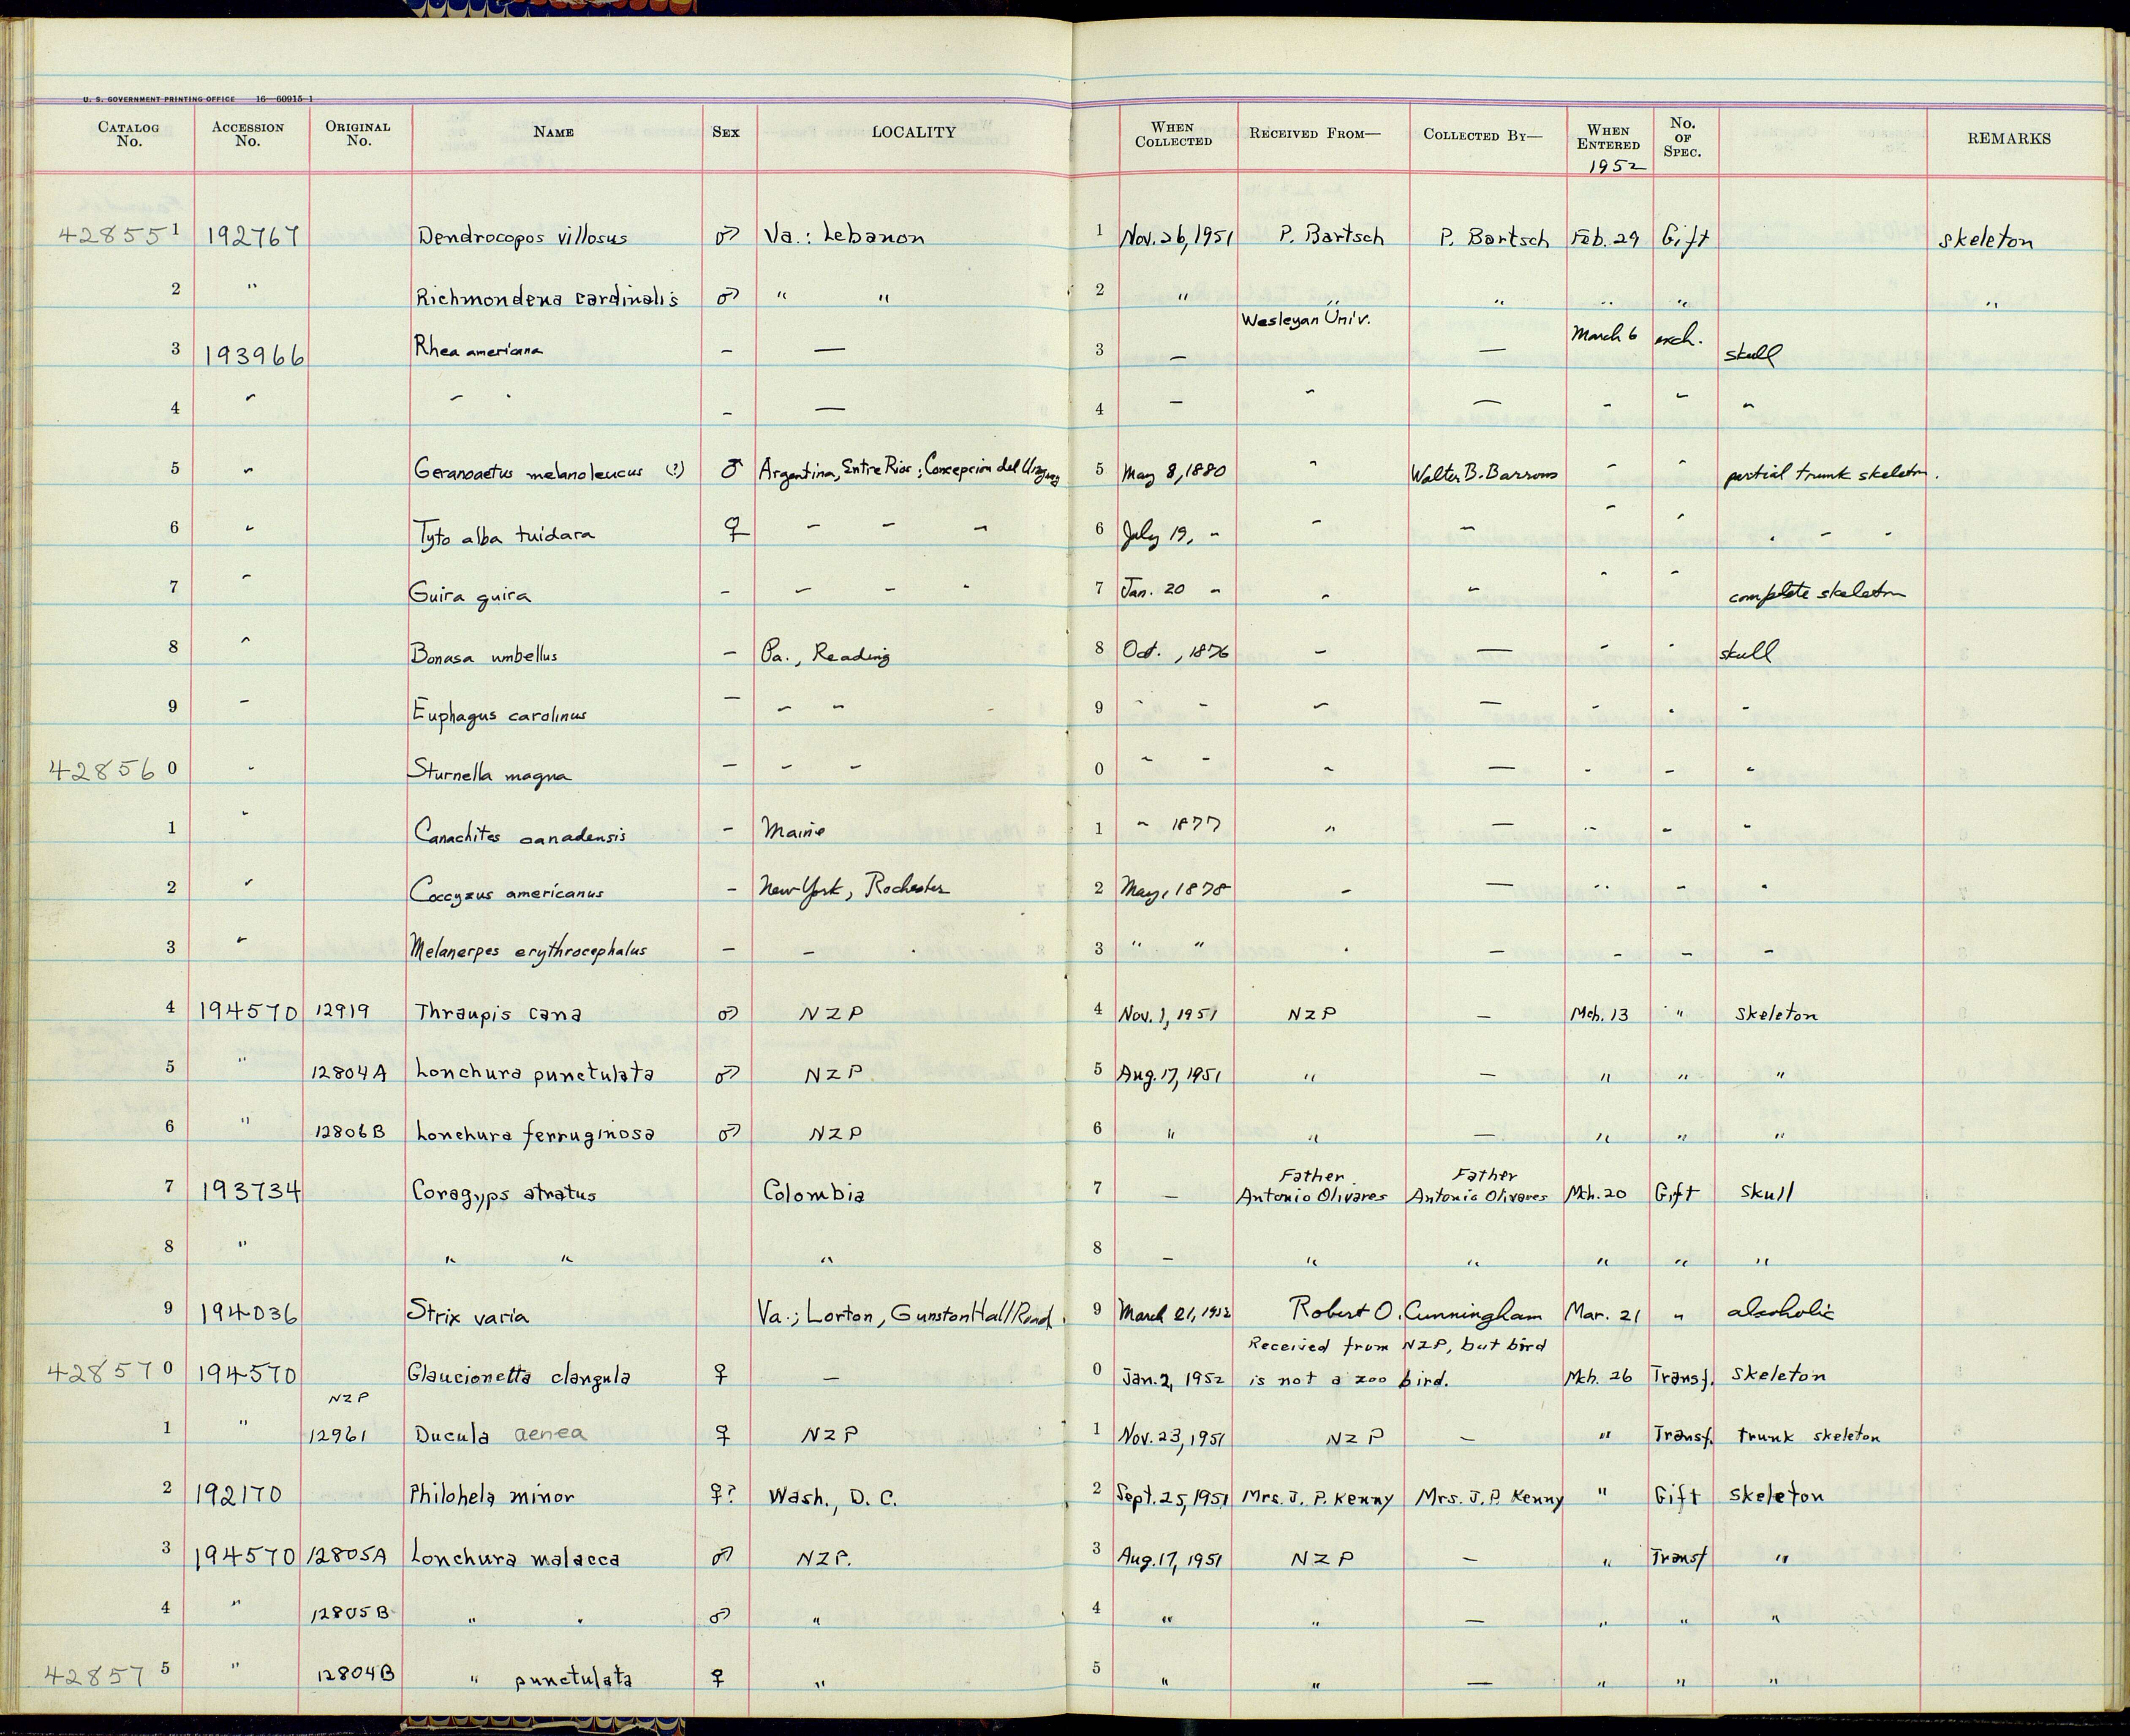 U. S. GOVERNMENT PRINTING OFFICE 16—60915-1
CATALOG No. ACCESSION No. ORIGINAL No. NAME SEX LOCALITY WHEN COLLECTED RECEIVED FROM— COLLECTED BY— WHEN ENTERED 1952 No. OF SPEC. REMARKS
428551 192767 Dendrocopos villosus ♂ Va.: Lebanon 1 Nov. 26, 1951 P. Bartsch P. Bartsch Feb. 29 Gift skeleton
2 " Richmondena cardinalis ♂ " " 2 " " " " " "
3 193966 Rhea americana – — 3 — Wesleyan Univ. — March 6 exch. skull
4 " " " – — 4 — " — " " "
5 " Geranoaetus melanoleucus (?) ♂ Argentina, Entre Rios; Concepcion del Uruguay 5 May 8, 1880 " Walter B. Barrows " " partial trunk skeleton.
6 " Tyto alba tuidara ♀ " " " 6 July 19, " " " " " " " "
7 " Guira guira – " " " 7 Jan. 20 " " " " " complete skeleton
8 " Bonasa umbellus – Pa., Reading 8 Oct., 1876 " — " " skull
9 " Euphagus carolinus — " " 9 " " " — " " "
428560 " Sturnella magna — " " 0 " " " — " " "
1 " Canachites canadensis – Maine 1 " 1877 " — " " "
2 " Coccyzus americanus – New York, Rochester 2 May, 1878 " — " " "
3 " Melanerpes erythrocephalus – " " 3 " " " — " " "
4 194570 12919 Thraupis cana ♂ NZP 4 Nov. 1, 1951 NZP — Mch. 13 " Skeleton
5 " 12804A Lonchura punctulata ♂ NZP 5 Aug. 17, 1951 " — " " "
6 " 12806B Lonchura ferruginosa ♂ NZP 6 " " — " " "
7 193734 Coragyps atratus Colombia 7 — Father Antonio Olivares Father Antonio Olivares Mch. 20 Gift Skull
8 " " " " 8 — " " " " "
9 194036 Strix varia Va.; Lorton, Gunston Hall Road. 9 March 21, 1952 Robert O. Cunningham Mar. 21 " alcoholic
428570 194570 Glaucionetta clangula ♀ — 0 Jan. 2, 1952 Received from NZP, but bird is not a zoo bird. Mch. 26 Transf. Skeleton
1 " NZP 12961 Ducula aenea ♀ NZP 1 Nov. 23, 1951 NZP — " Transf. trunk skeleton
2 192170 Philohela minor ♀? Wash., D. C. 2 Sept. 25, 1951 Mrs. J. P. Kenny Mrs. J. P. Kenny " Gift Skeleton
3 194570 12805A Lonchura malacca ♂ NZP. 3 Aug. 17, 1951 NZP — " Transf "
4 " 12805B " " ♂ " 4 " " — " " "
428575 " 12804B " punctulata ♀ " 5 " " — " " "